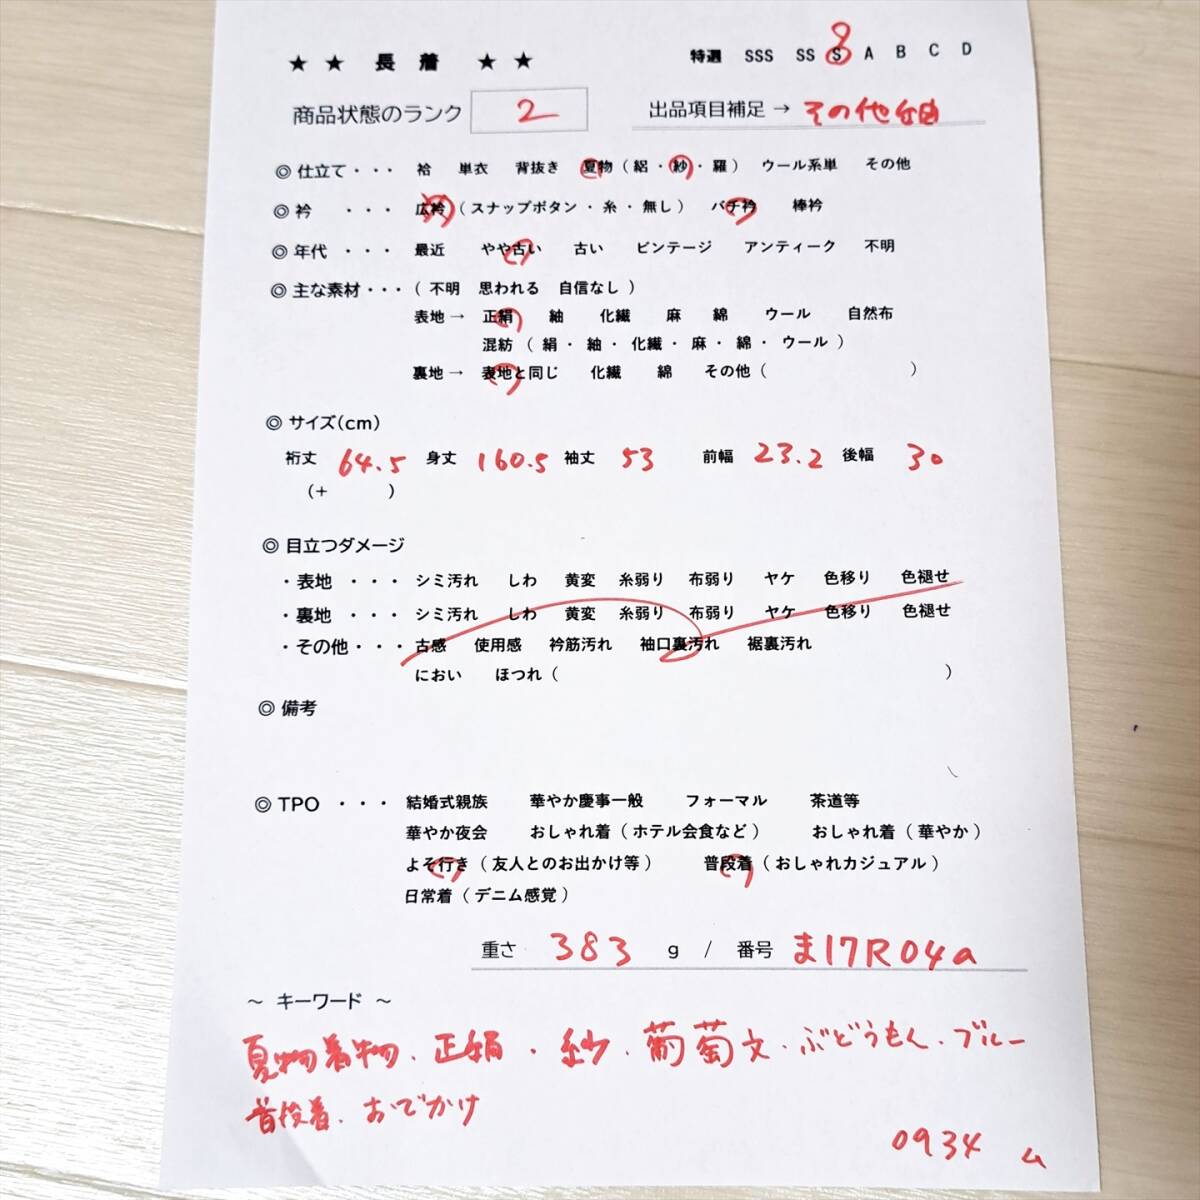 ★ ★ 長 着 ★ ★
特選 SSS SS S A B C D
8
商品状態のランク 2
出品項目補足 → その他紬
◎ 仕立て・・・ 袷 単衣 背抜き 夏物 ( 絽・紗・羅 ) ウール系単 その他
◎ 衿 ・・・ 広衿 ( スナップボタン・糸・無し ) バチ衿 棒衿
◎ 年代 ・・・ 最近 やや古い 古い ビンテージ アンティーク 不明
◎ 主な素材・・・ ( 不明 思われる 自信なし )
表地 → 正絹 紬 化繊 麻 綿 ウール 自然布
混紡 ( 絹・紬・化繊・麻・綿・ウール )
裏地 → 表地と同じ 化繊 綿 その他 ( )
◎ サイズ(cm)
裄丈 64.5 身丈 160.5 袖丈 53 前幅 23.2 後幅 30
(+ )
◎ 目立つダメージ
・表地 ・・・ シミ汚れ しわ 黄変 糸弱り 布弱り ヤケ 色移り 色褪せ
・裏地 ・・・ シミ汚れ しわ 黄変 糸弱り 布弱り ヤケ 色移り 色褪せ
・その他・・・ 古感 使用感 衿筋汚れ 袖口裏汚れ 裾裏汚れ
におい ほつれ ( )
◎ 備考
◎ TPO ・・・ 結婚式親族 華やか慶事一般 フォーマル 茶道等
華やか夜会 おしゃれ着 ( ホテル会食など ) おしゃれ着 ( 華やか )
よそ行き ( 友人とのお出かけ等 ) 普段着 ( おしゃれカジュアル )
日常着 ( デニム感覚 )
重さ 383 g / 番号 ま17R04a
～ キーワード ～
夏物着物・正絹・紗・葡萄文・ぶどうもん・ブルー
普段着・おでかけ
0934 ム